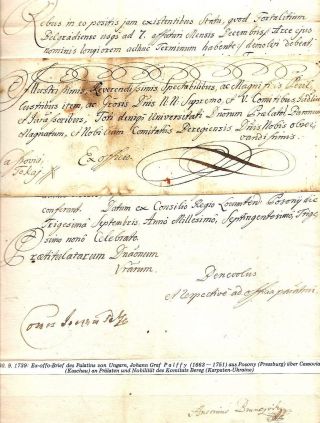 Rebus in eo positis jam existentibus statu, quod Fortalitium
Belgradiense usq ad 7. affuturi Mensis Decembris, Arce ejus
nominis longiorem adhuc Terminum habente, demoliri debeat,
Illustrissimis, Reverendissimis, Spectabilibus, ac Magnificis
item, ac Grosis Dnis N.N. Supremo, et V. Comitibus
et Juratsoribus, Toti deniqs Universitati Dnorum Prælatorum
Magnatum, et Nobilium Comitatus Beregiensis Dnis Nobis obser
vandissimis.
Ex officio
a Posonio
Tokaj
conferent. Datum ex Consilio Regio Locumten. Posony die
Trigesima Septembris. Anno Millesimo, Septingentesimo, Trige
simo nono Celebrato
Prætitulatarum Dnaonum
Vrarum
Benevolus
Respective ad officia paratmi.
Comes Joannes
30. 9. 1739: Ex-offo-Brief des Palatins von Ungarn, Johann Graf Palffy (1663 — 1751) aus Posony (Pressburg) über Cassonia
(Kaschau) an Prälaten und Nobilität des Komitats Bereg (Karpaten-Ukraine)
Antonius